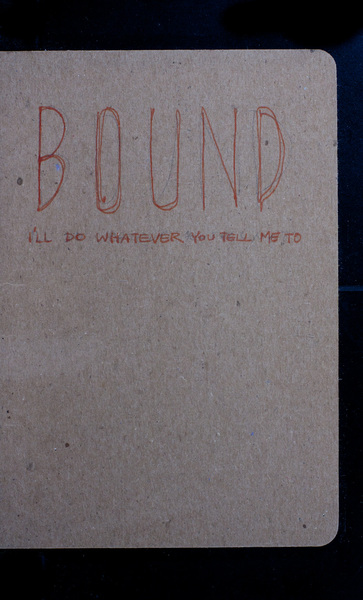 BOUND
I'LL DO WHATEVER YOU TELL ME TO